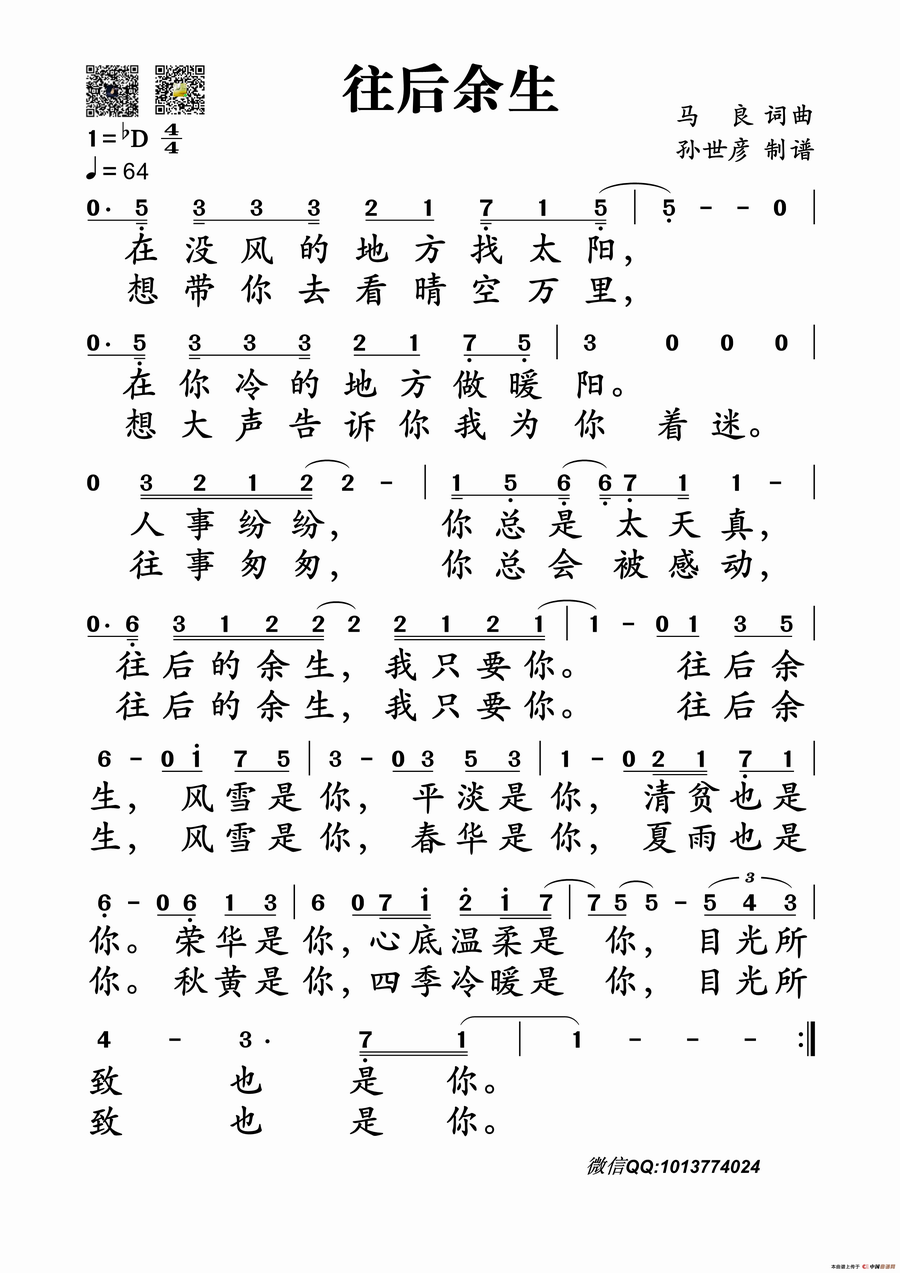 往后余生
马 良 词曲
1=♭D 4/4
孙世彦 制谱
♩= 64
0· 5 3 3 3 2 1 7 1 5 | 5 - - 0 |
在没风的地方找太阳，
想带你去看晴空万里，
0· 5 3 3 3 2 1 7 5 | 3 0 0 0 |
在你冷的地方做暖阳。
想大声告诉你我为你着迷。
0 3 2 1 2 2 - | 1 5 6 6 7 1 1 - |
人事纷纷，你总是太天真，
往事匆匆，你总会被感动，
0· 6 3 1 2 2 2 2 1 2 1 | 1 - 0 1 3 5 |
往后的余生，我只要你。往后余
往后的余生，我只要你。往后余
6 - 0 1 7 5 | 3 - 0 3 5 3 | 1 - 0 2 1 7 1 |
生，风雪是你，平淡是你，清贫也是
生，风雪是你，春华是你，夏雨也是
6 - 0 6 1 3 | 6 0 7 1 2 1 7 | 7 5 5 - 3 5 4 3 |
你。荣华是你，心底温柔是你，目光所
你。秋黄是你，四季冷暖是你，目光所
4 - 3· 7 1 | 1 - - - :|
致也是你。
致也是你。
微信QQ:1013774024
本曲谱上传于 中国曲谱网